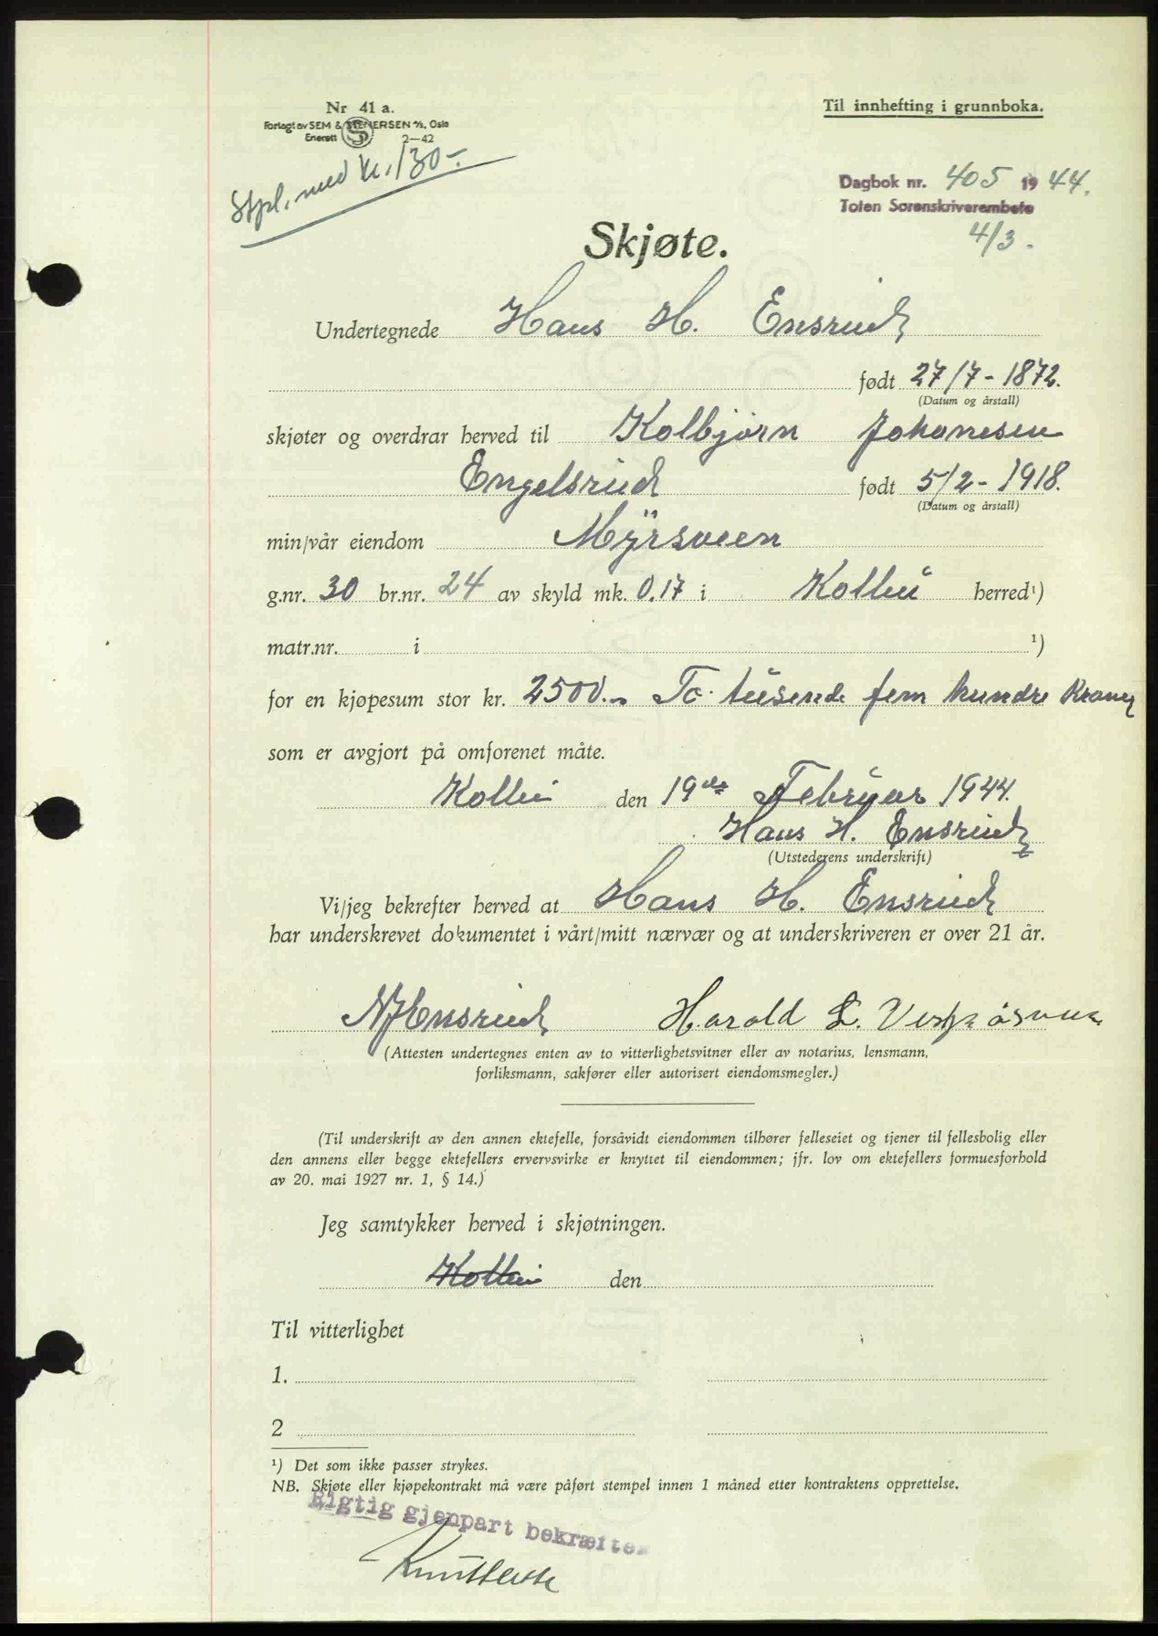 Nr 41 a.
Forlagt av SEM & STENERSEN A/S, Oslo
Enerett 2—42
Til innhefting i grunnboka.
Stpl. med kr. 130-.
Dagbok nr. 405 1944.
Toten Sorenskriverembete
4/3.
Skjøte.
Undertegnede Hans H. Ensrud
født 27/7 - 1872.
(Datum og årstall)
skjøter og overdrar herved til Kolbjørn Johansen
Engelsrud født 5/2 - 1918.
(Datum og årstall)
min/vår eiendom Myrsveen
g.nr. 30 br.nr. 24 av skyld mk. 0.17 i Kolbu herred¹)
matr.nr. i ¹)
for en kjøpesum stor kr. 2500.- To tusende fem hundre Kroner
som er avgjort på omforenet måte.
Kolbu den 19de Februar 1944.
Hans H. Ensrud
(Utstederens underskrift)
Vi/jeg bekrefter herved at Hans H. Ensrud
har underskrevet dokumentet i vårt/mitt nærvær og at underskriveren er over 21 år.
Ensrud Harold L.
(Attesten undertegnes enten av to vitterlighetsvitner eller av notarius, lensmann,
forliksmann, sakfører eller autorisert eiendomsmegler.)
(Til underskrift av den annen ektefelle, forsåvidt eiendommen tilhører felleseiet og tjener til fellesbolig eller
den annens eller begge ektefellers ervervsvirke er knyttet til eiendommen; jfr. lov om ektefellers formuesforhold
av 20. mai 1927 nr. 1, § 14.)
Jeg samtykker herved i skjøtningen.
Kolbu den
Til vitterlighet
1.
2
¹) Det som ikke passer strykes.
NB. Skjøte eller kjøpekontrakt må være påført stempel innen 1 måned etter kontraktens opprettelse.
Rigtig gjenpart bekræftes